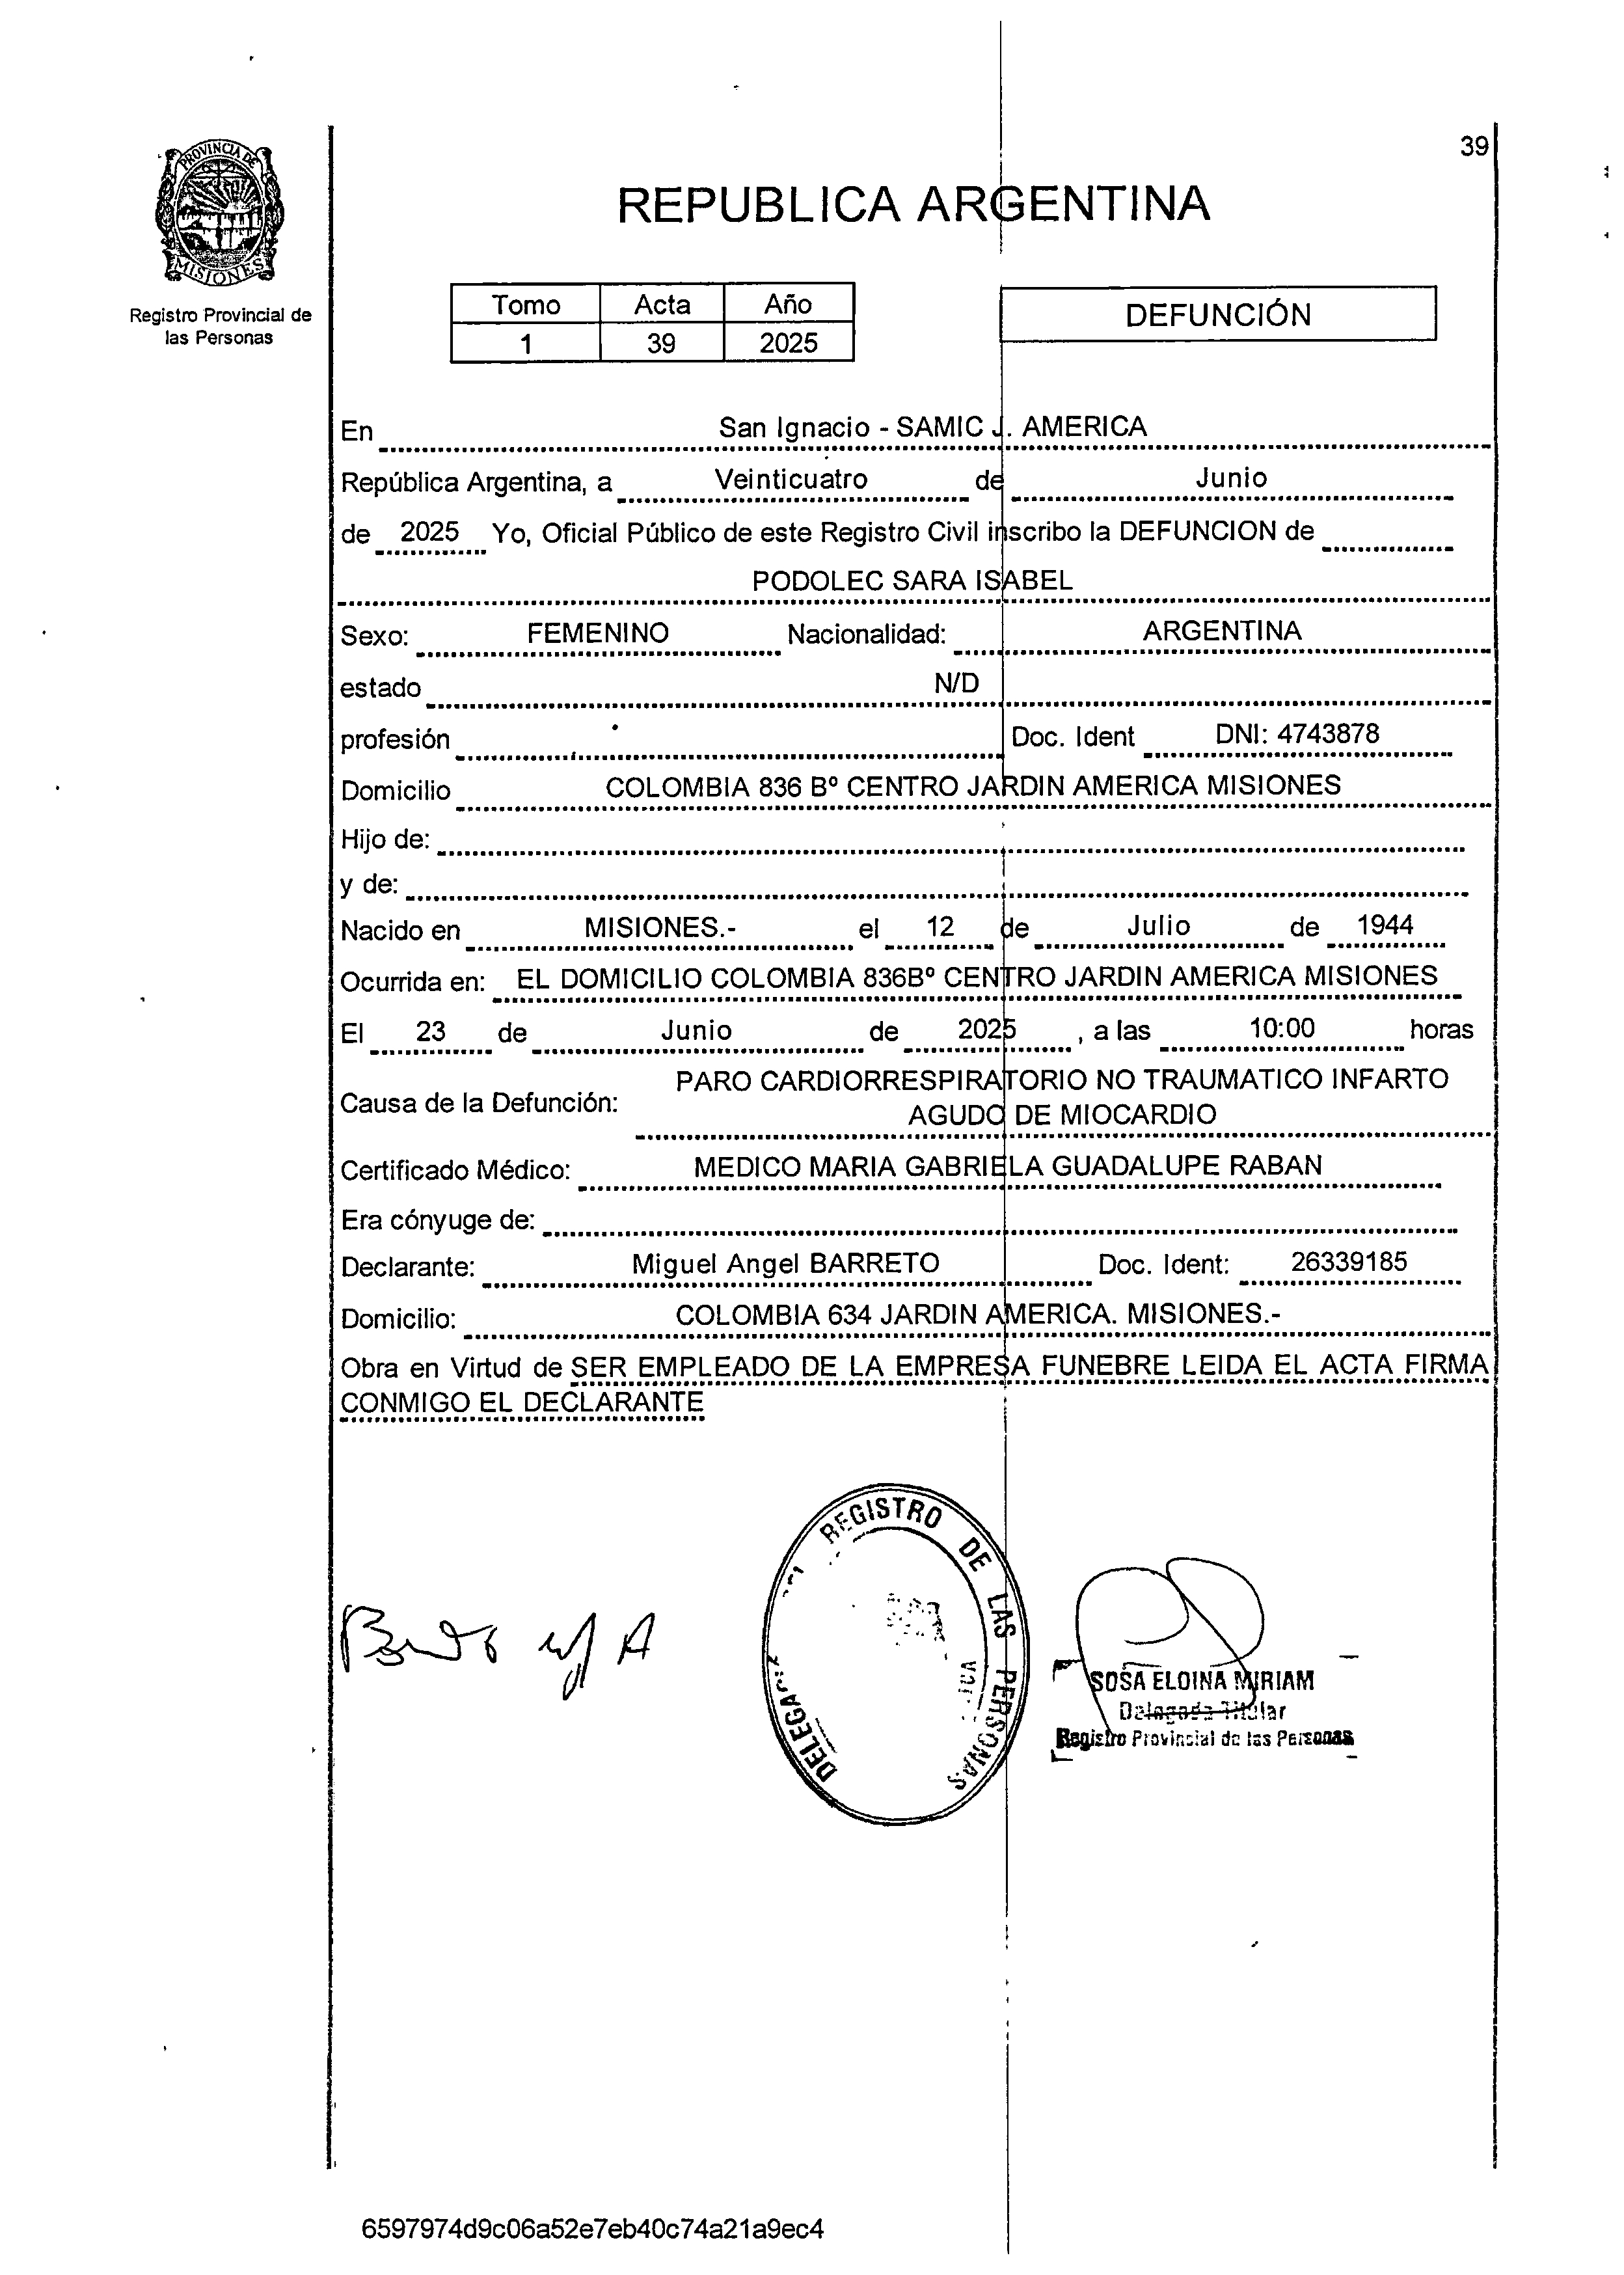 39
PROVINCIA DE
MISIONES
Registro Provincial de
las Personas
REPUBLICA ARGENTINA
Tomo Acta Año
1 39 2025
DEFUNCIÓN
En San Ignacio - SAMIC J. AMERICA
República Argentina, a Veinticuatro de Junio
de 2025 Yo, Oficial Público de este Registro Civil inscribo la DEFUNCION de
PODOLEC SARA ISABEL
Sexo: FEMENINO Nacionalidad: ARGENTINA
estado N/D
profesión Doc. Ident DNI: 4743878
Domicilio COLOMBIA 836 Bº CENTRO JARDIN AMERICA MISIONES
Hijo de:
y de:
Nacido en MISIONES.- el 12 de Julio de 1944
Ocurrida en: EL DOMICILIO COLOMBIA 836Bº CENTRO JARDIN AMERICA MISIONES
El 23 de Junio de 2025 , a las 10:00 horas
Causa de la Defunción: PARO CARDIORRESPIRATORIO NO TRAUMATICO INFARTO
AGUDO DE MIOCARDIO
Certificado Médico: MEDICO MARIA GABRIELA GUADALUPE RABAN
Era cónyuge de:
Declarante: Miguel Angel BARRETO Doc. Ident: 26339185
Domicilio: COLOMBIA 634 JARDIN AMERICA. MISIONES.-
Obra en Virtud de SER EMPLEADO DE LA EMPRESA FUNEBRE LEIDA EL ACTA FIRMA
CONMIGO EL DECLARANTE
REGISTRO DE LAS PERSONAS
SOSA ELOINA MIRIAM
Delegada Titular
Registro Provincial de las Personas
6597974d9c06a52e7eb40c74a21a9ec4